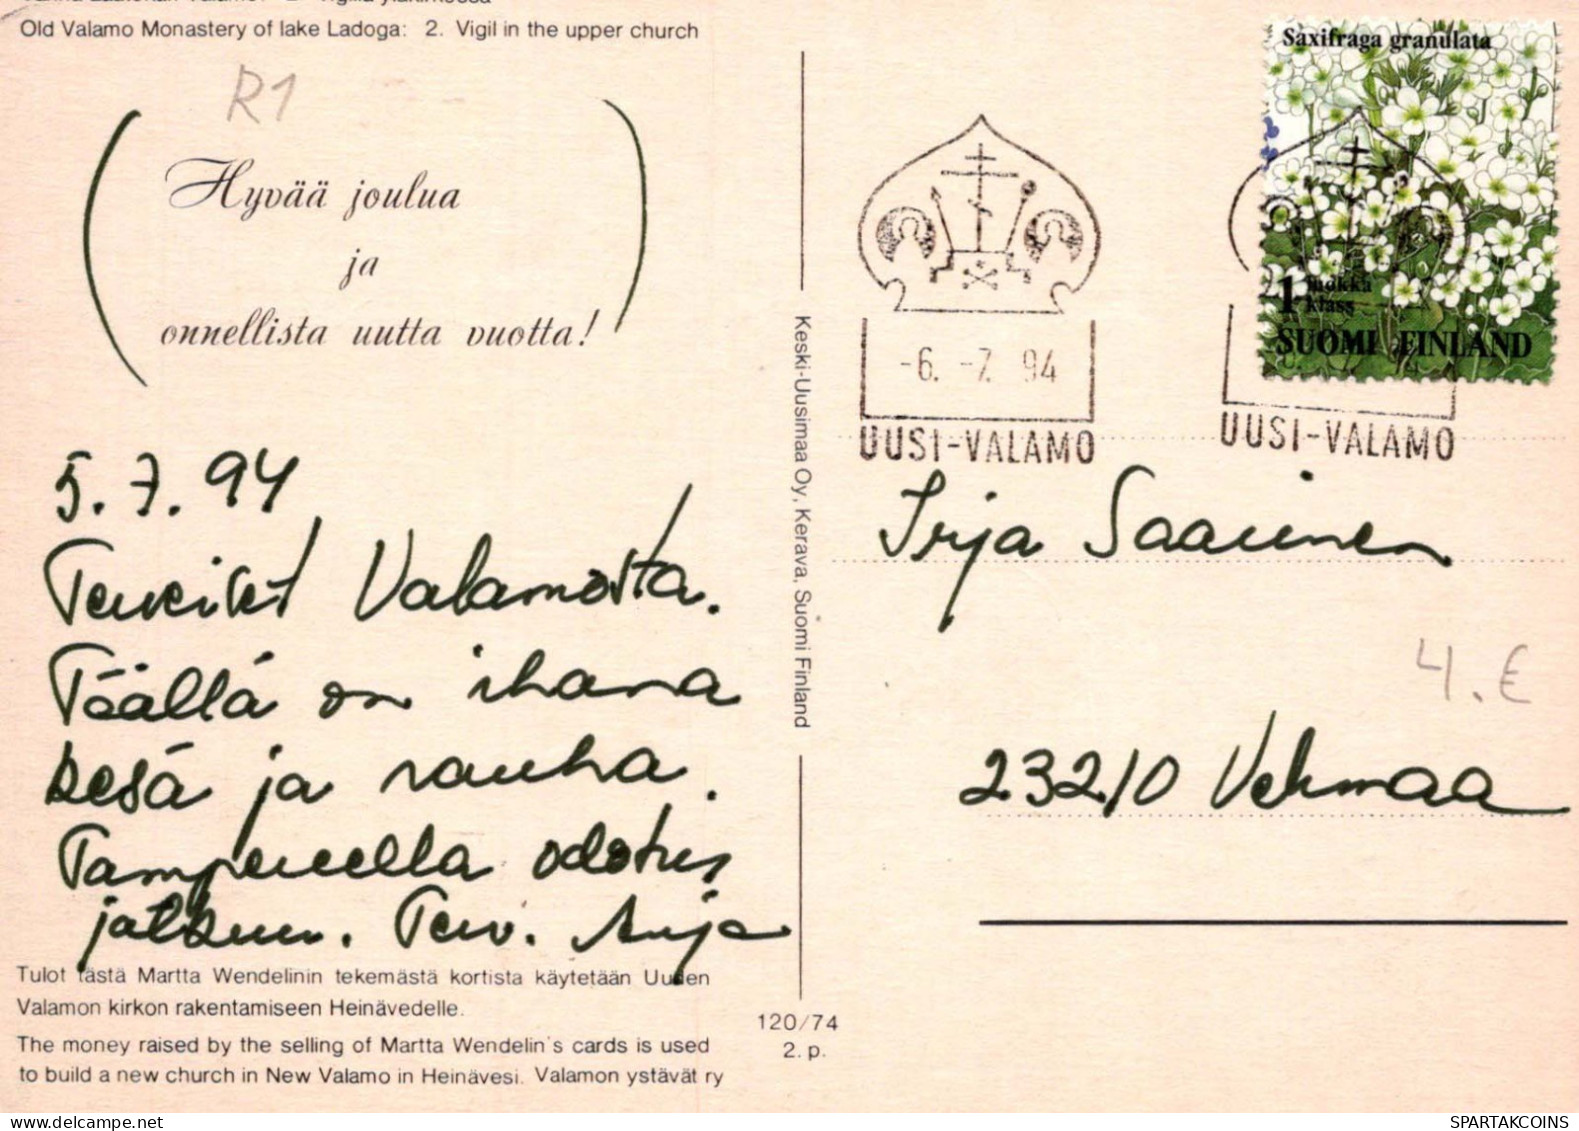 Old Valamo Monastery of lake Ladoga: 2. Vigil in the upper church
R1
Hyvää joulua
ja
onnellista uutta vuotta!
5.7.94
Terveiset Valamosta.
Täällä on ihana
kesä ja rauha.
Tampereella odotus
jatkuu. Terv. Anja
Tulot tästä Martta Wendelinin tekemästä kortista käytetään Uuden
Valamon kirkon rakentamiseen Heinävedelle.
The money raised by the selling of Martta Wendelin's cards is used
to build a new church in New Valamo in Heinävesi. Valamon ystävät ry
Keski-Uusimaa Oy, Kerava, Suomi Finland
120/74
2. p.
Saxifraga granulata
1 luokka
klass
SUOMI FINLAND
-6. -7. 94
UUSI-VALAMO
UUSI-VALAMO
Irja Saarinen
4.€
23210 Vehmaa
SPARTAKCOINS
https://www.delcampe.net